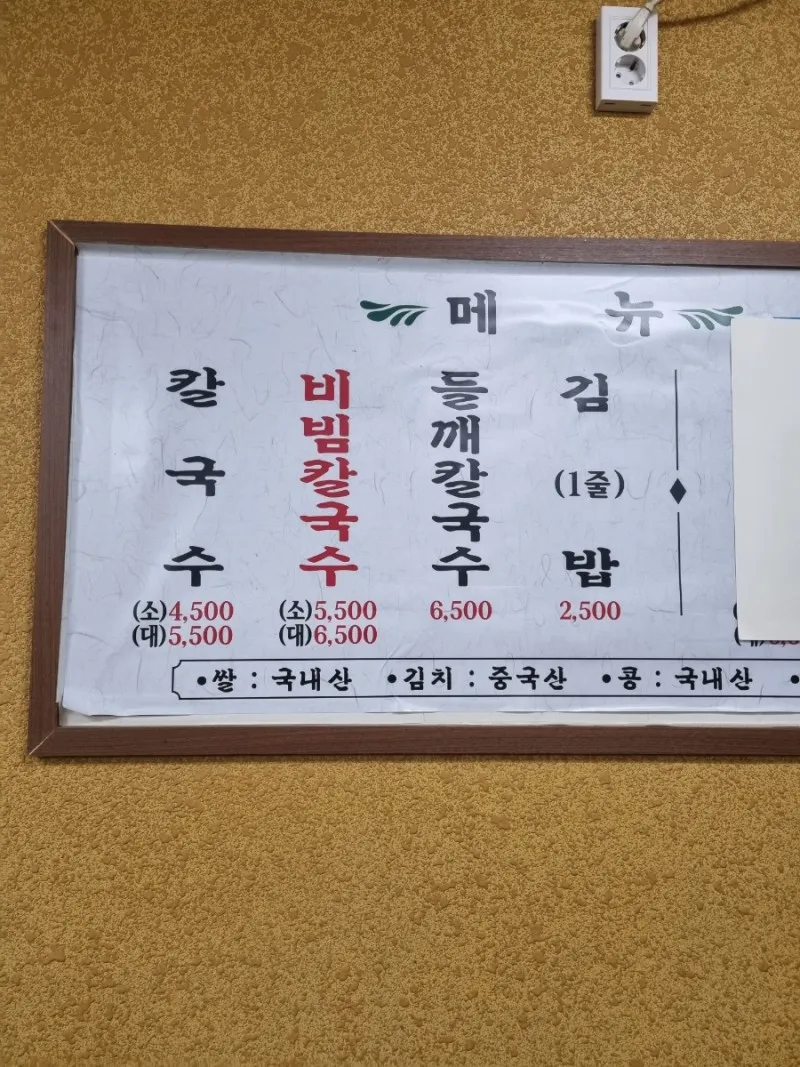 메 뉴
칼국수
(소)4,500
(대)5,500
비빔칼국수
(소)5,500
(대)6,500
들깨칼국수
6,500
김
(1줄)
밥
2,500
(대)
•쌀 : 국내산 •김치 : 중국산 •콩 : 국내산 •